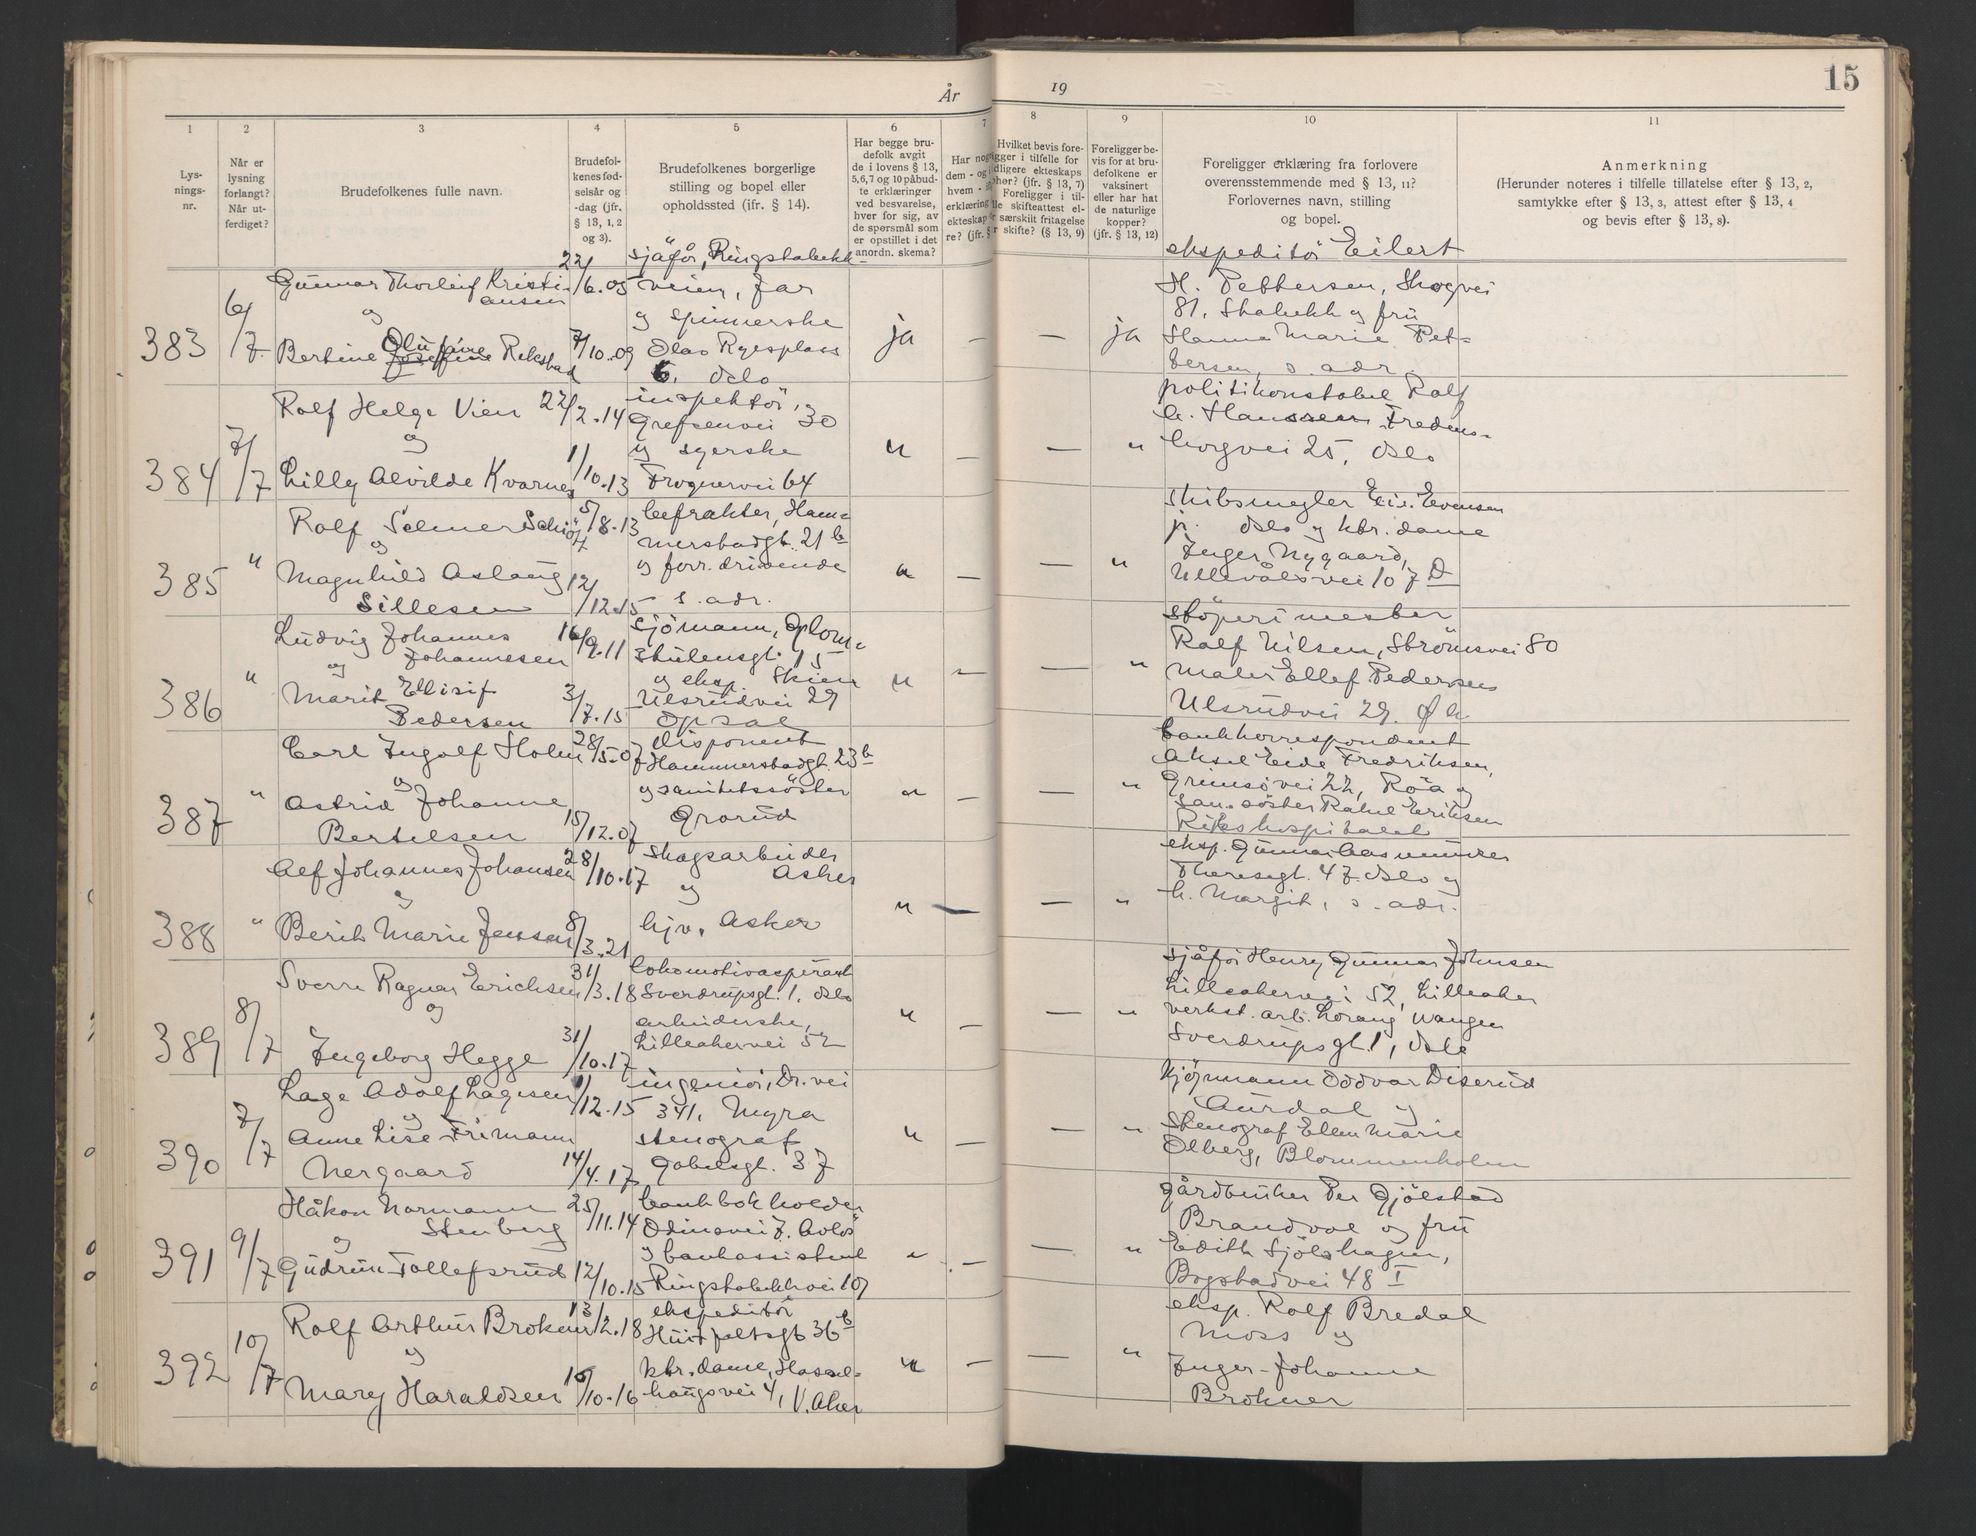 År 19
15
1 2 3 4 5 6 7 8 9 10 11
Lys-
nings-
nr.
Når er
lysning
forlangt?
Når ut-
ferdiget?
Brudefolkenes fulle navn.
Brudefol-
kenes fød-
selsår og
-dag (jfr.
§ 13, 1, 2
og 3).
Brudefolkenes borgerlige
stilling og bopel eller
opholdssted (ifr. § 14).
Har begge bru-
defolk avgit
de i lovens § 13,
5,6,7 og 10 påbud-
te erklæringer
ved besvarelse,
hver for sig, av
de spørsmål som
er opstillet i det
anordn. skema?
Har nog
dem - og i
hvem -
erklæring
ekteskap
re? (jfr. §
Hvilket bevis fore-
ligger i tilfelle for
tidligere ekteskaps
ophør? (jfr. § 13, 7)
Foreligger i til-
felle skifteattest el-
ler særskilt fritagelse
for skifte? (§ 13, 9)
Foreligger be-
vis for at bru-
defolkene er
vaksinert
eller har hat
de naturlige
kopper?
(jfr. § 13, 12)
Foreligger erklæring fra forlovere
overensstemmende med § 13, 11?
Forlovernes navn, stilling
og bopel.
Anmerkning
(Herunder noteres i tilfelle tillatelse efter § 13, 2,
samtykke efter § 13, 3, attest efter § 13, 4
og bevis efter § 13, 8).
383
6/7
Gunnar Thorleif Kristi-
ansen
og
Bertine Olufine Rekstad
22/6.05
7/10.09
sjåfør, Ringstabekk-
veien, Jar
og spinnerske
Olas Ryesplass
6. Oslo
ja
—
—
ja
ekspeditør Eilert
H. Pettersen, Skogvei
81, Stabekk og fru
Hanna Marie Pet-
tersen, s. adr.
384
7/7
Rolf Helge Vien
og
Lilly Alvilde Kvarnes
22/2.14
1/10.13
inspektør,
Grefsenvei 30
og syerske
Frognervei 64
"
—
—
"
politikonstabel Rolf
Fredens-
borgvei 25, Oslo
385
"
Rolf Selmer Schiött
og
Magnhild Aslaug
Sillesen
5/8.13
12/12.15
befrakter, Ham-
merstadgt. 21 b
og forr.drivende
s. adr.
"
—
—
"
skibsmegler Evensen
jr. Oslo og ktr. dame
Inger Nygaard,
Ullevålsvei 107 D
386
"
Ludvig Johannes
Johannesen
og
Marit Ellisif
Pedersen
16/9.11
3/7.15
sjömann, Oplom-
stulensgt. 15
og eksp. Skien
Ulsrudvei 29
Opsal
"
—
—
"
stöperimester
Rolf Nilsen, Strömsvei 80
maler Ellef Pedersen
Ulsrudvei 29. Øh
387
"
Carl Ingolf Holm
og
Astrid Johanne
Bertelsen
28/5.07
15/12.07
disponent
Hammerstadgt. 23 b
og sanitetssöster
Grorud
"
—
—
"
bankkorrespondent
Aksel Eide Fredriksen,
Grimsövei 22, Röa og
san. söster Rakel Eriksen
Rikshospitalet
388
"
Alf Johannes Johansen
og
Berit Marie Jensen
28/10.17
8/3.21
skogsarbeider
og Asker
hjv. Asker
"
—
—
"
eksp. Gunnar Aasmundsen
Theresegt. 47. Oslo og
h. Margit, s. adr.
389
8/7
Sverre Ragnar Erichsen
og
Ingeborg Hegge
31/3.18
31/10.17
lokomotivaspirant
Sverdrupsgt. 1, Oslo
arbeiderske,
Lilleakervei 52
"
—
—
"
sjåför Henry Gunnar Johnsen
Lilleakervei 52, Lilleaker
verkst. arb. Lorang Wangen
Sverdrupsgt. 1, Oslo
390
7/7
Lage Adolf Lagesen
og
Anne Lise Frimann
Nergaard
1/12.15
14/4.17
ingeniör, Dr.vei
341, Myra
stenograf
Gabelsgt. 37
"
—
—
"
kjöpmann Oddvar Diserud
Aurdal og
Stenograf Ellen Marie
Olberg, Blommenholm
391
9/7
Håkon Normann
Stenberg
og
Gudrun Tollefsrud
25/11.14
12/10.15
bankbokholder
Odinsvei 7. Avlös
og bankassistent
Ringstabekkvei 107
"
—
—
"
gårdbruker Per Gjölstad
Brandval og fru
Edith Sjölshagen,
Bogstadvei 48 I
392
10/7
Rolf Arthur Brokner
og
Mary Haraldsen
13/2.18
16/10.16
ekspeditör
Huitfeltsgt 36 b
ktr. dame, Hassel-
haugsvei 4, V. Aker
"
—
—
"
eksp. Rolf Bredal
Moss og
Inger-Johanne
Brokner